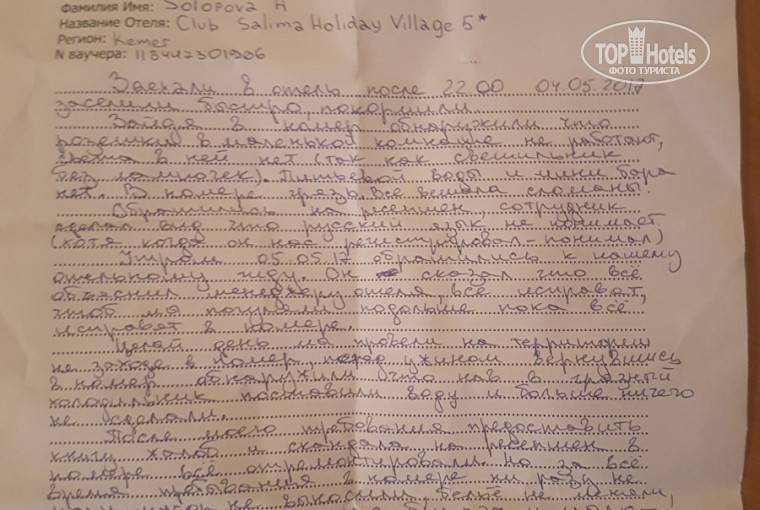 Фамилия Имя: Solopova A
Название Отеля: Club Salima Holiday Village 5*
Регион: Kemer
N ваучера: 118442301906
TOP Hotels
ФОТО ТУРИСТА
Заехали в отель после 22.00 04.05.2017
заселили быстро, покормили.
Зайдя в номер обнаружили что
розетки в маленькой комнате не работают,
света в ней нет (так как светильник
без лампочек). Питьевой воды и мини бара
нет. В номере грязь. Все вешала сломаны.
Обратились на ресепшен, сотрудник
сделал вид что русский язык не понимает
(хотя когда он нас регистрировал - понимал)
Утром 05.05.17 обратились к нашему
отельному гиду. Он сказал что всё
объяснил менеджеру отеля, всё исправят,
чтоб мы погуляли подольше пока всё
исправят в номере.
Целый день мы провели на территории
не заходя в номер, перед ужином вернувшись
в номер обнаружили что нам в грязный
холодильник поставили воду и больше ничего
не сделали.
После моего требования предоставить
книгу жалоб и скандала на ресепшен в
номере все отремонтировали но за всё
время пребывания в номере ни разу не
мусор не выносили, бельё не меняли,